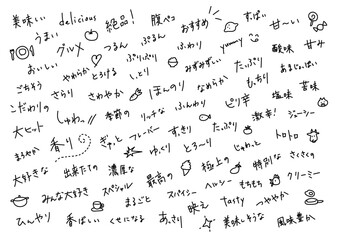 美味しい delicious 絶品! 腹ペコ おすすめ すっぱい 甘〜い
うまい グルメ つるん ぷるん ふわり yummy 酸味 甘み
おいしい やわらか とろける ぷりぷり しっとり みずみずしい たっぷり あまじょっぱい
ごちそう さらり さわやか ほんのり なめらか もっちり 塩味 苦味
こだわりの しゅわっ 季節の リッチな ふんわり ピリ辛 激辛! ジューシー
大ヒット 香り ぎゅっと フレーバー すっきり たっぷり トロトロ
まろやか ゆっくり とろ〜り じゅわっと さくさくの
大好きな 出来たての 濃厚な 最高の 極上の 特別な クリーミー
みんな大好き スペシャル スパイシー ヘルシー もちもち
ひんやり 香ばしい まるごと くせになる あっさり 映え tasty つややか 美味しそうな 風味豊か